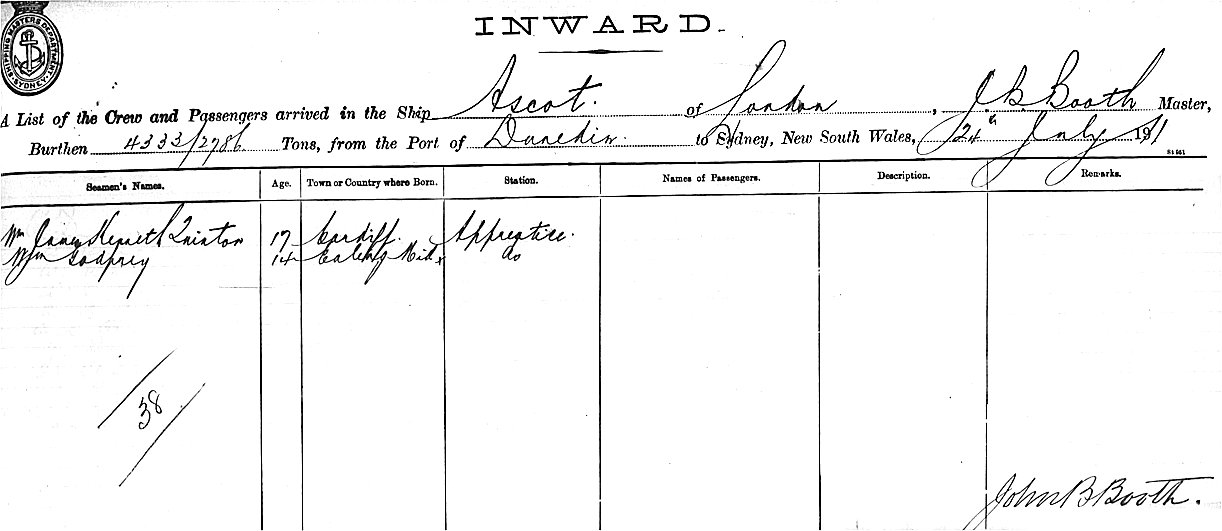 SHIPPING MASTERS DEPARTMENT SYDNEY
INWARD.
A List of the Crew and Passengers arrived in the Ship Ascot. of London, J B Booth Master,
Burthen 4333/2786 Tons, from the Port of Dunedin to Sydney, New South Wales, 24th July 1911
Seamen's Names. Age. Town or Country where Born. Station. Names of Passengers. Description. Remarks.
Wm James Kenneth Quinton 17 Cardiff. Apprentice.
Wm Godfrey 14 Ealing Midx do
38
John B Booth.